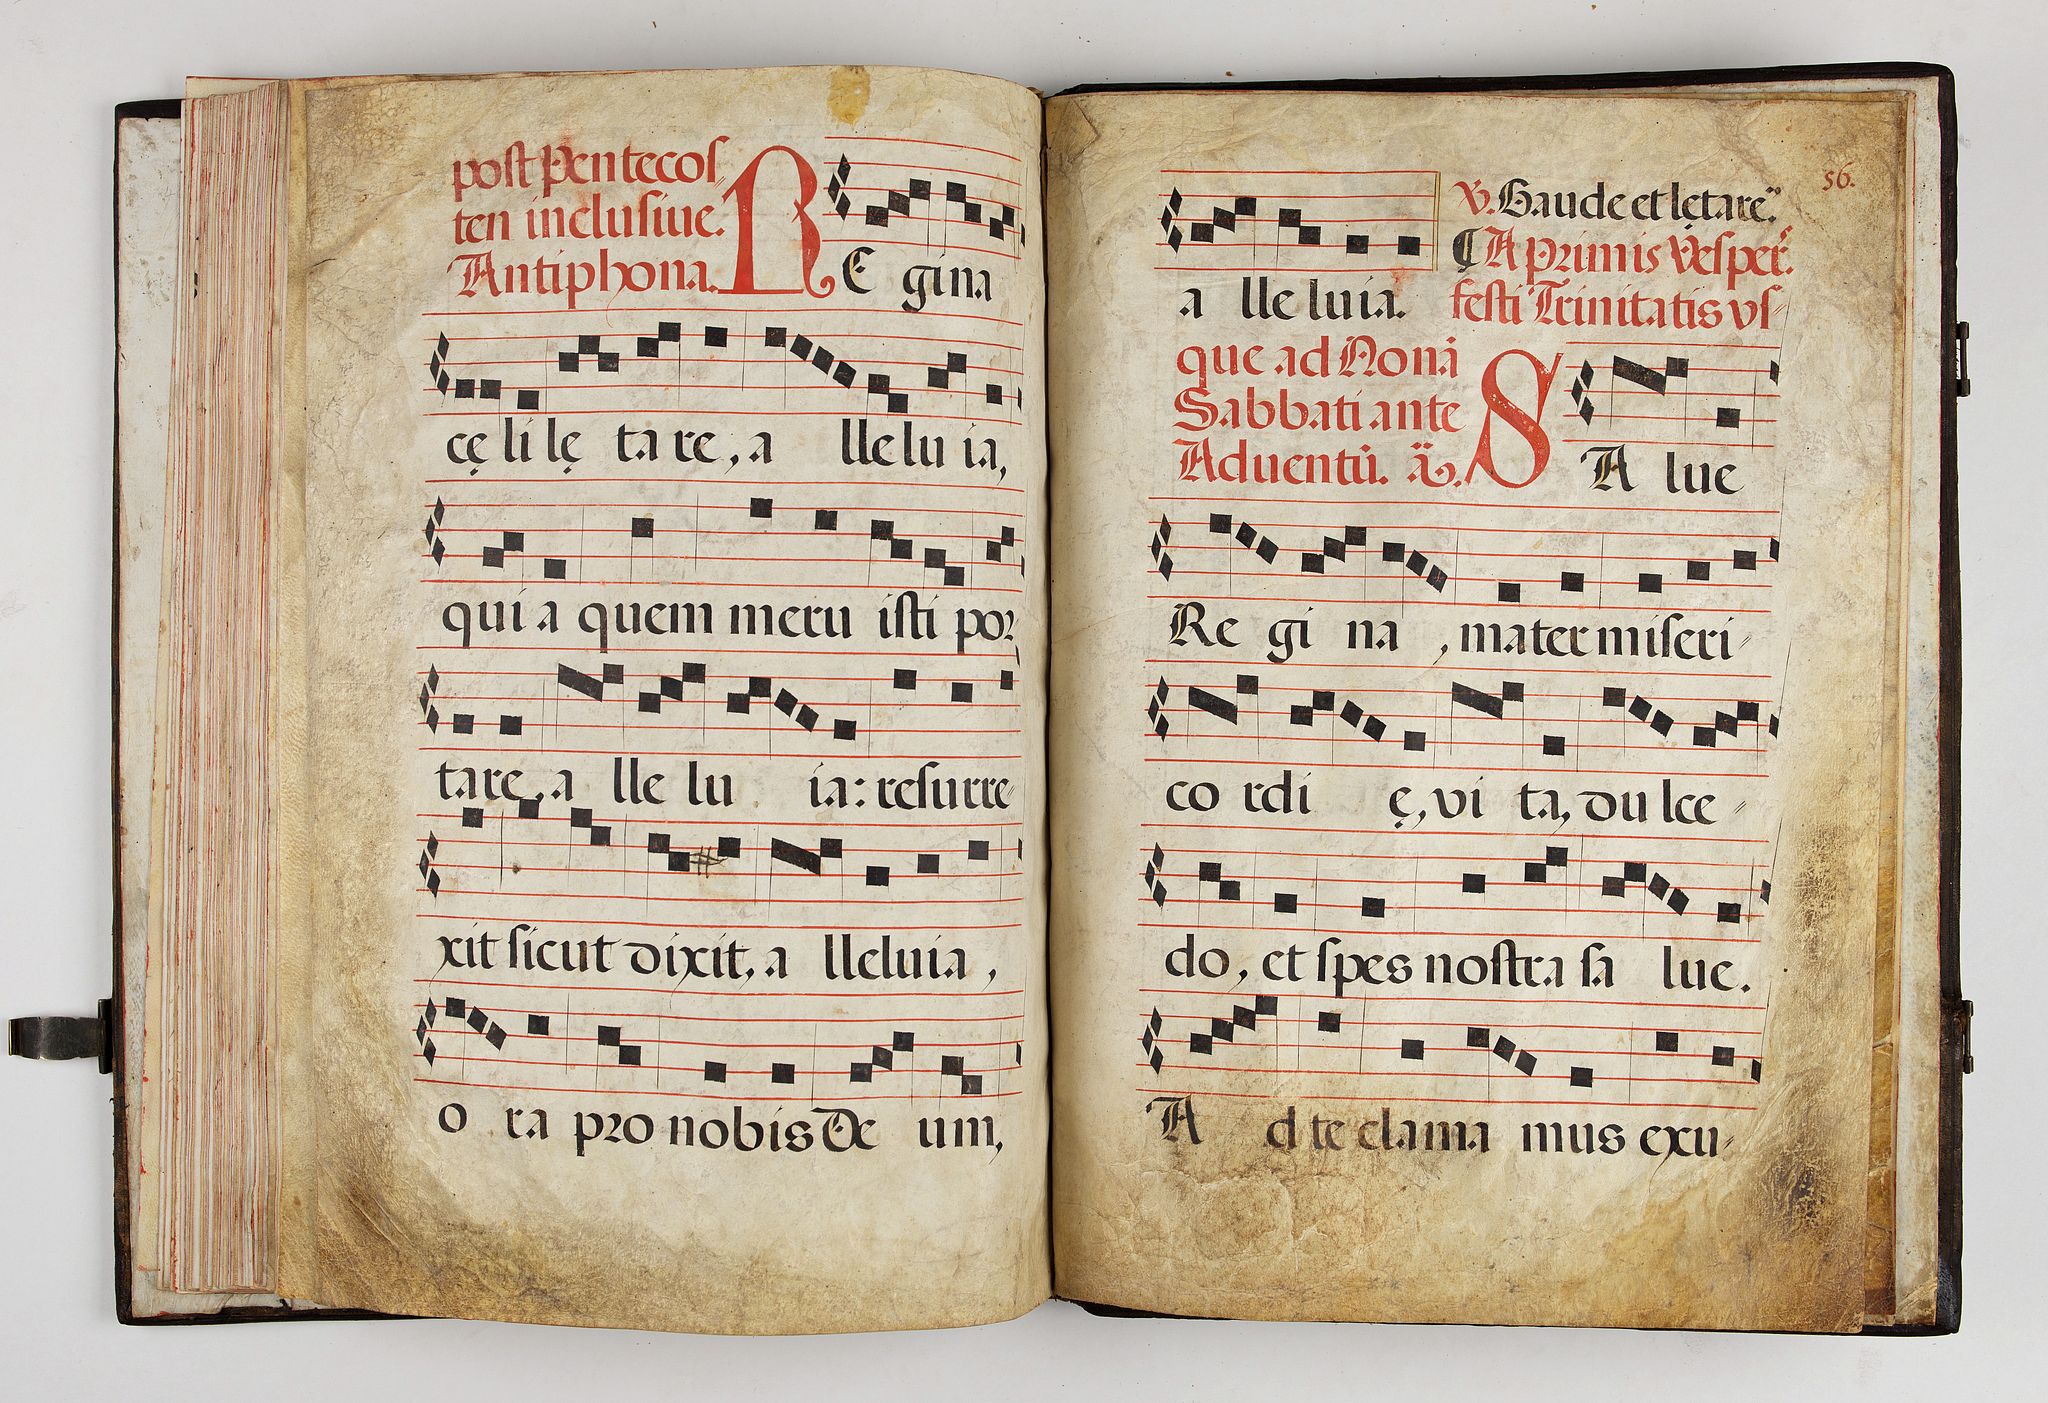 post Pentecos⸗
ten inclusiue.
Antiphona.
RE gina
cę li lę ta re, a lle lu ia,
qui a quem meru isti por
tare, a lle lu ia: resurre⸗
xit sicut dixit, a lleluia,
o ra pro nobis De um,
56.
a lle luia. ℣. Gaude et lętare.
¶ A primis Vesper.
festi Trinitatis vs⸗
que ad Nonā
Sabbati ante
Aduentū. ā.
SA lue
Re gi na, mater miseri⸗
co rdi ę, vi ta, du lce⸗
do, et spes nostra sa lue.
A d te clama mus exu⸗